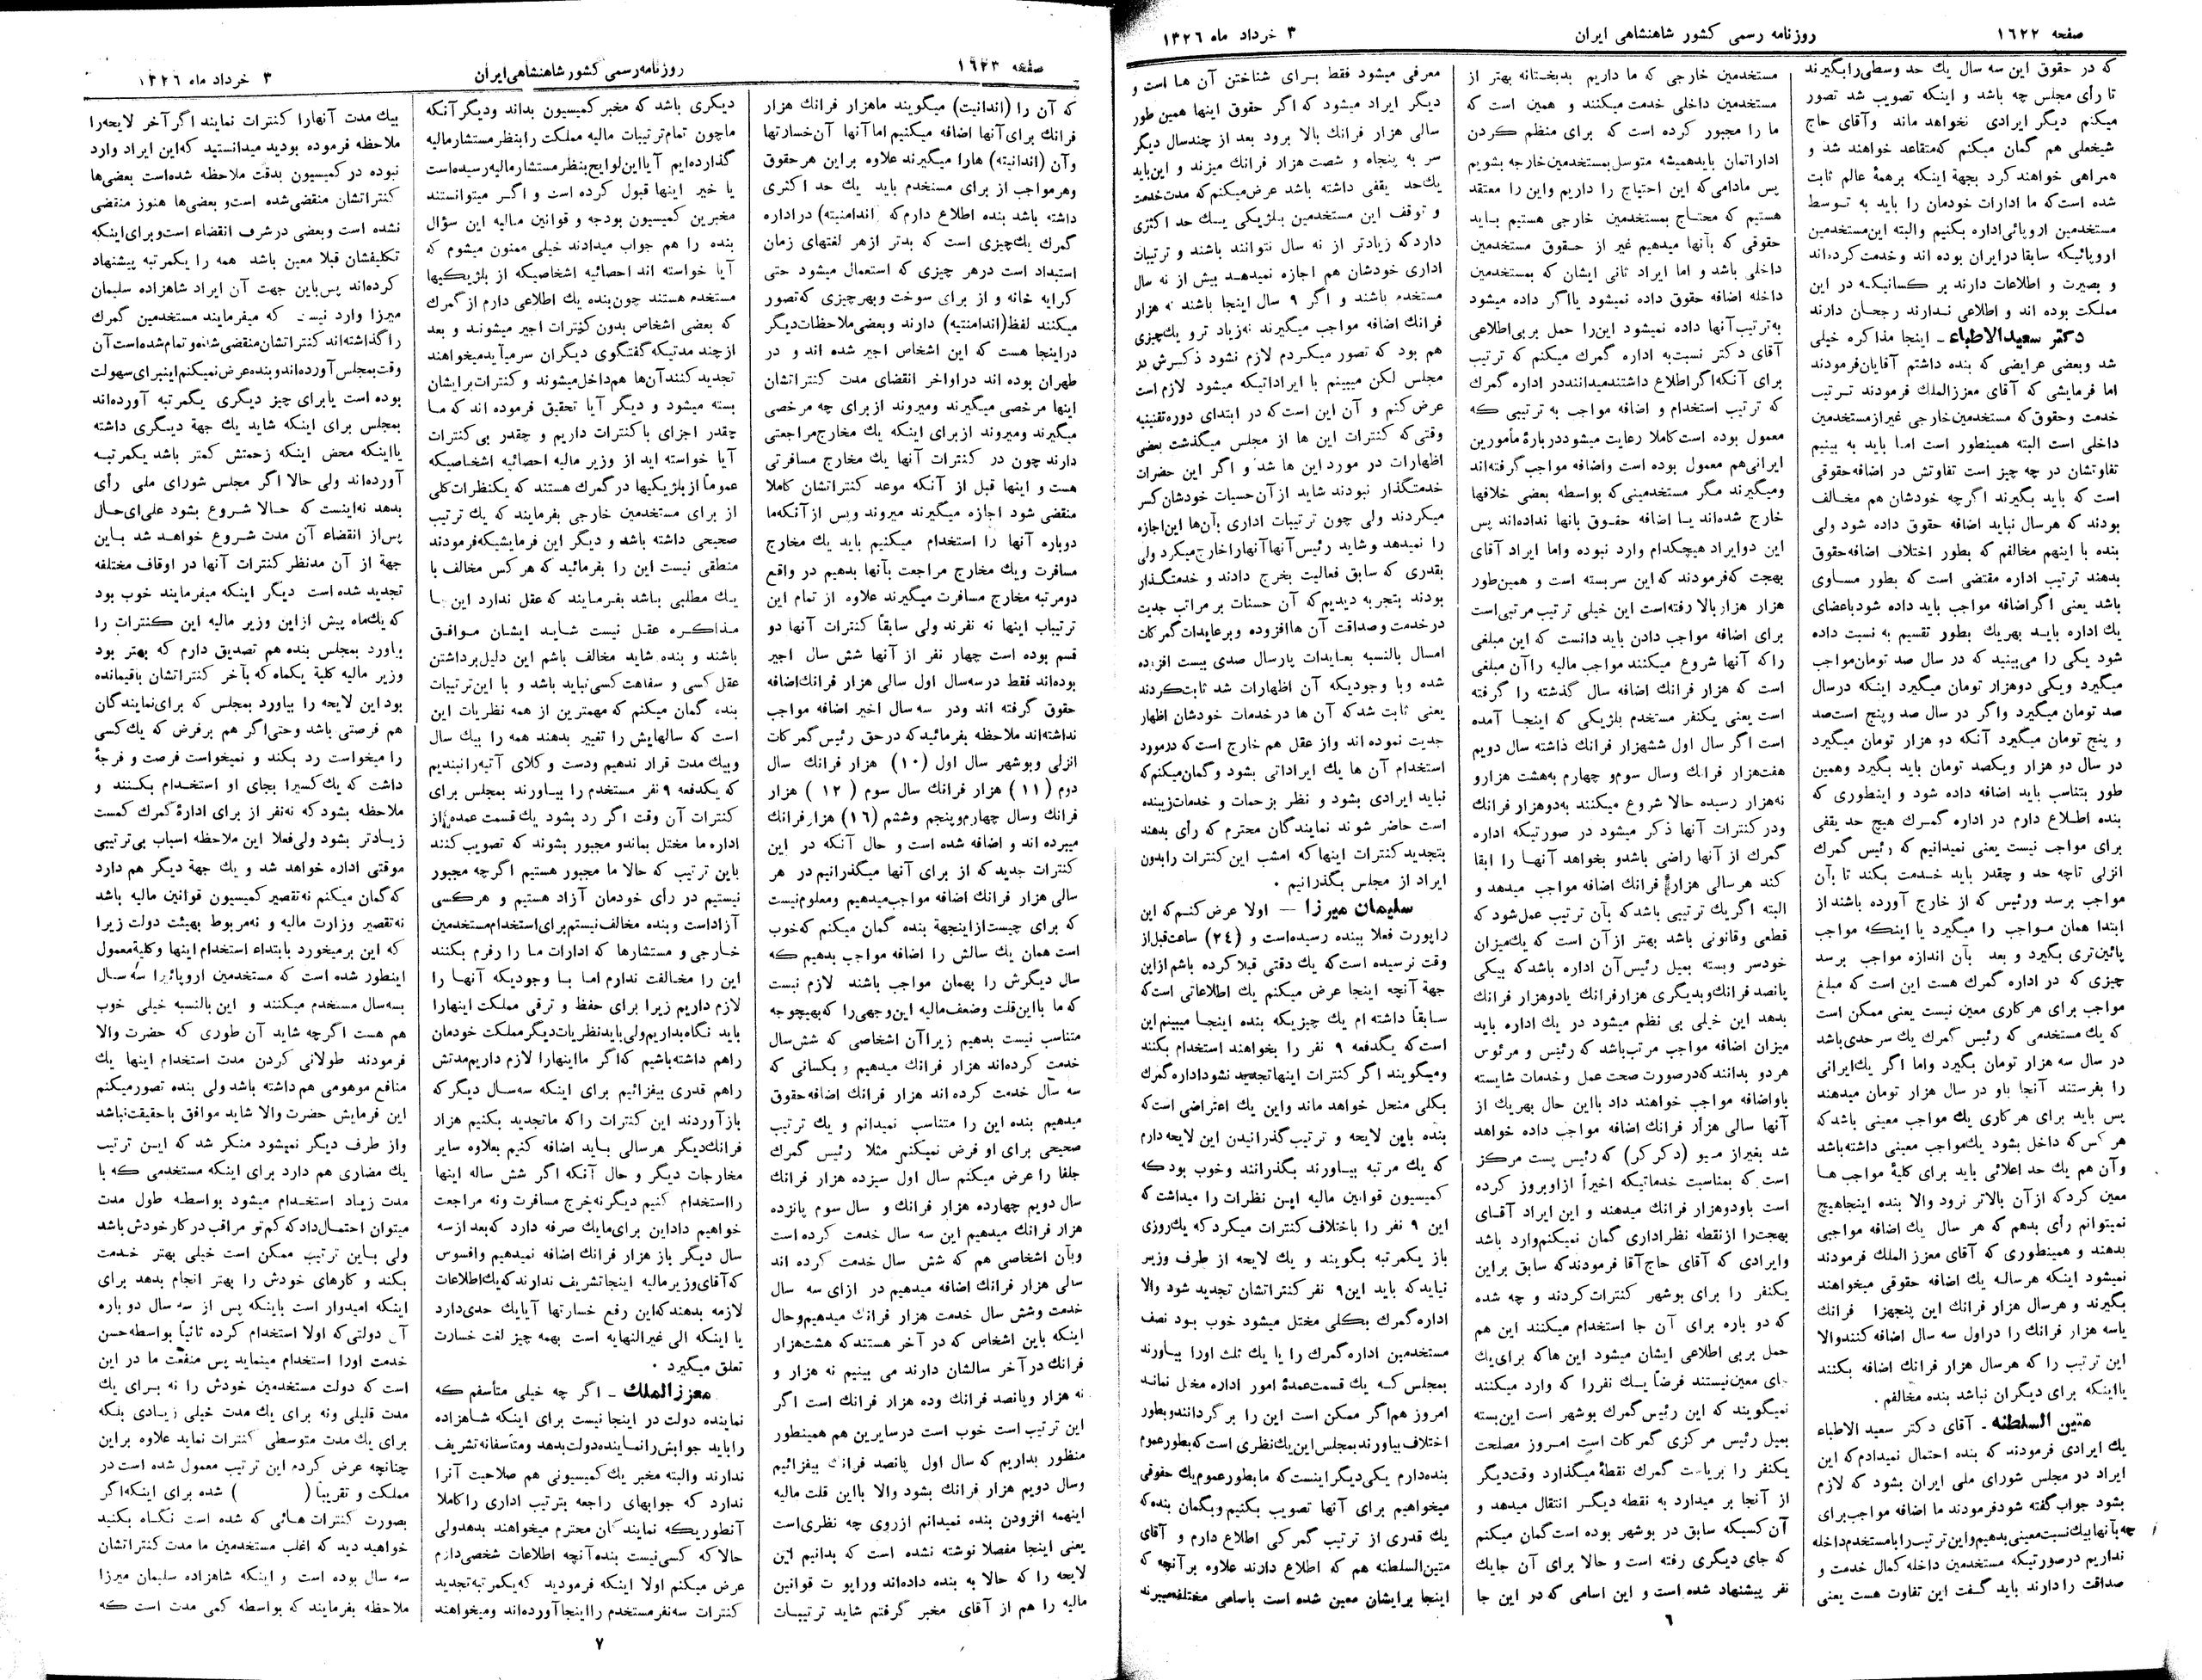 صفحه ۱۶۲۲
روزنامه رسمی کشور شاهنشاهی ایران
۳ خرداد ماه ۱۳۲۶
که در حقوق این سه سال یك حد وسطی رابگیرند
تا رأی مجلس چه باشد و اینکه تصویب شد تصور
میکنم دیگر ایرادی نخواهد ماند وآقای حاج
شیخعلی هم گمان میکنم که متقاعد خواهند شد و
همراهی خواهند کرد بجهة اینکه برهمهٔ عالم ثابت
شده است که ما ادارات خودمان را باید به توسط
مستخدمین اروپائی اداره بکنیم والبته این مستخدمین
اروپائیکه سابقا درایران بوده اند وخدمت کرده اند
و بصیرت و اطلاعات دارند بر کسانیکه در این
مملکت بوده اند و اطلاعی ندارند رجحان دارند
دکتر سعیدالاطباء ـ اینجا مذاکره خیلی
شد وبعضی عرایضی که بنده داشتم آقایان فرمودند
اما فرمایشی که آقای معززالملك فرمودند ترتیب
خدمت وحقوق که مستخدمین خارجی غیر از مستخدمین
داخلی است البته همینطور است اما باید به بینیم
تفاوتشان در چه چیز است تفاوتش در اضافه حقوقی
است که باید بگیرند اگرچه خودشان هم مخالف
بودند که هرسال نباید اضافه حقوق داده شود ولی
بنده با اینهم مخالفم که بطور اختلاف اضافه حقوق
بدهند ترتیب اداره مقتضی است که بطور مساوی
باشد یعنی اگر اضافه مواجب باید داده شود باعضای
یك اداره باید بهریك بطور تقسیم به نسبت داده
شود یکی را می‌بینید که در سال صد تومان مواجب
میگیرد ویکی دوهزار تومان میگیرد اینکه درسال
صد تومان میگیرد واگر در سال صد وپنج است صد
و پنج تومان میگیرد آنکه دو هزار تومان میگیرد
در سال دو هزار ویکصد تومان باید بگیرد وهمین
طور بتناسب باید اضافه داده شود و اینطوری که
بنده اطلاع دارم در اداره گمرك هیچ حد یقفی
برای مواجب نیست یعنی نمیدانیم که رئیس گمرك
انزلی تاچه حد و چقدر باید خدمت بکند تا بآن
مواجب برسد ورئیس که از خارج آورده باشند از
ابتدا همان مواجب را میگیرد یا اینکه مواجب
پائین‌تری بگیرد و بعد بآن اندازه مواجب برسد
چیزی که در اداره گمرك هست این است که مبلغ
مواجب برای هر کاری معین نیست یعنی ممکن است
که یك مستخدمی که رئیس گمرك یك سرحدی باشد
در سال سه هزار تومان بگیرد واما اگر یك ایرانی
را بفرستند آنجا باو در سال هزار تومان میدهند
پس باید برای هر کاری یك مواجب معینی باشد که
هر کس که داخل بشود یك مواجب معینی داشته باشد
وآن هم یك حد اعلائی باید برای کلیهٔ مواجب ها
معین کرد که از آن بالاتر نرود والا بنده اینجا هیچ
نمیتوانم رأی بدهم که هر سال یك اضافه مواجبی
بدهند و همینطوری که آقای معزز الملك فرمودند
نمیشود اینکه هرساله یك اضافه حقوقی میخواهند
بگیرند و هرسال هزار فرانك این پنجهزا فرانك
یاسه هزار فرانك را دراول سه سال اضافه کنندوالا
این ترتیب را که هرسال هزار فرانك اضافه بکنند
یااینکه برای دیگران نباشد بنده مخالفم .
متین السلطنه ـ آقای دکتر سعید الاطباء
یك ایرادی فرمودند که بنده احتمال نمیدادم که این
ایراد در مجلس شورای ملی ایران بشود که لازم
بشود جواب گفته شود فرمودند ما اضافه مواجب برای
چه بآنها بیك نسبت معینی بدهیم واین ترتیب را بامستخدم داخله
نداریم درصورتیکه مستخدمین داخله کمال خدمت و
صداقت را دارند باید گفت این تفاوت هست یعنی
مستخدمین خارجی که ما داریم بدبختانه بهتر از
مستخدمین داخلی خدمت میکنند و همین است که
ما را مجبور کرده است که برای منظم کردن
اداراتمان بایدهمیشه متوسل بمستخدمین خارجه بشویم
پس مادامی که این احتیاج را داریم واین را معتقد
هستیم که محتاج بمستخدمین خارجی هستیم باید
حقوقی که بآنها میدهیم غیر از حقوق مستخدمین
داخلی باشد و اما ایراد ثانی ایشان که بمستخدمین
داخله اضافه حقوق داده نمیشود یااگر داده میشود
به ترتیب آنها داده نمیشود این‌را حمل بربی اطلاعی
آقای دکتر نسبت به اداره گمرك میکنم که ترتیب
برای آنکه اگر اطلاع داشتند میدانند در اداره گمرك
که ترتیب استخدام و اضافه مواجب به ترتیبی که
معمول بوده است کاملا رعایت میشود دربارهٔ مأمورین
ایرانی هم معمول بوده است واضافه مواجب گرفته اند
ومیگیرند مگر مستخدمینی که بواسطه بعضی خلافها
خارج شده‌اند یا اضافه حقوق بآنها نداده‌اند پس
این دوایراد هیچکدام وارد نبوده واما ایراد آقای
بهجت که فرمودند که این سر بسته است و همین‌طور
هزار هزار بالا رفته است این خیلی ترتیب مرتبی است
برای اضافه مواجب دادن باید دانست که این مبلغی
راکه آنها شروع میکنند مواجب مالیه راآن مبلغی
است که هزار فرانك اضافه سال گذشته را گرفته
است یعنی یکنفر مستخدم بلژیکی که اینجا آمده
است اگر سال اول ششهزار فرانك داشته سال دویم
هفت هزار فرانك وسال سوم و چهارم به هشت هزار و
نه هزار رسیده حالا شروع میکنند به دوهزار فرانك
ودر کنترات آنها ذکر میشود در صورتیکه اداره
گمرك از آنها راضی باشد و بخواهد آنها را ابقا
کند هرسالی هزار فرانك اضافه مواجب میدهد و
البته اگر یك ترتیبی باشد که بآن ترتیب عمل شود که
قطعی وقانونی باشد بهتر از آن است که یك میزان
خودسر وبسته بمیل رئیس آن اداره باشد که بیکی
پانصد فرانك وبدیگری هزار فرانك یادوهزار فرانك
بدهد این خیلی بی نظم میشود در یك اداره باید
میزان اضافه مواجب مرتب باشد که رئیس و مرئوس
هردو بدانند که درصورت صحت عمل وخدمات شایسته
باو اضافه مواجب خواهند داد بااین حال بهریك از
آنها سالی هزار فرانك اضافه مواجب داده خواهد
شد بغیراز مسیو (دکر کر) که رئیس پست مرکز
است که بمناسبت خدماتیکه اخیراً ازاوبروز کرده
است باودوهزار فرانك میدهند و این ایراد آقای
بهجت را از نقطه نظر اداری گمان نمیکنم وارد باشد
وایرادی که آقای حاج آقا فرمودند که سابق براین
یکنفر را برای بوشهر کنترات کردند و چه شده
که دو باره برای آن جا استخدام میکنند این هم
حمل بربی اطلاعی ایشان میشود این ها که برای یك
جای معین نیستند فرضاً یك نفر را که وارد میکنند
نمیگویند که این رئیس گمرك بوشهر است این بسته
بمیل رئیس مرکزی گمرکات است امروز مصلحت
یکنفر را بریاست گمرك نقطهٔ میگذارد وقت دیگر
از آنجا بر میدارد به نقطه دیگر انتقال میدهد و
آن کسیکه سابق در بوشهر بوده است گمان میکنم
که جای دیگری رفته است و حالا برای آن جا یك
نفر پیشنهاد شده است و این اسامی که در این جا
معرفی میشود فقط برای شناختن آن ها است و
دیگر ایراد میشود که اگر حقوق اینها همین طور
سالی هزار فرانك بالا برود بعد از چندسال دیگر
سر به پنجاه و شصت هزار فرانك میزند و این باید
یك حد یقفی داشته باشد عرض میکنم که مدت خدمت
و توقف این مستخدمین بلژیکی یك حد اکثری
دارد که زیادتر از نه سال نتوانند باشند و ترتیبات
اداری خودشان هم اجازه نمیدهد بیش از نه سال
مستخدم باشند و اگر ۹ سال اینجا باشند نه هزار
فرانك اضافه مواجب میگیرند نه زیاد تر و یك چیزی
هم بود که تصور میکردم لازم نشود ذکرش در
مجلس لکن میبینم با ایراداتیکه میشود لازم است
عرض کنم و آن این است که در ابتدای دوره تقنینیه
وقتی که کنترات این ها از مجلس میگذشت بعضی
اظهارات در مورد این ها شد و اگر این حضرات
خدمتگذار نبودند شاید از آن حسیات خودشان کسر
میکردند ولی چون ترتیبات اداری بآن‌ها این اجازه
را نمیدهد وشاید رئیس آنها آنهارا خارج میکرد ولی
بقدری که سابق فعالیت بخرج دادند و خدمتگذار
بودند بتجربه دیدیم که آن حسنات بر مراتب جدیت
درخدمت وصداقت آن ها افزوده وبرعایدات گمرکات
امسال بالنسبه بعایدات پارسال صدی بیست افزوده
شده وبا وجودیکه آن اظهارات شد ثابت کردند
یعنی ثابت شد که آن ها درخدمات خودشان اظهار
جدیت نموده اند واز عقل هم خارج است که درمورد
استخدام آن ها یك ایراداتی بشود وگمان میکنم که
نباید ایرادی بشود و نظر بزحمات و خدمات زیبنده
است حاضر شوند نمایندگان محترم که رأی بدهند
بتجدید کنترات اینها که امشب این کنترات را بدون
ایراد از مجلس بگذرانیم .
سلیمان میرزا — اولا عرض کنم که این
راپورت فعلا ببنده رسیده است و (۲٤) ساعت قبل از
وقت نرسیده است که یك دقتی قبلا کرده باشم از این
جهة آنچه اینجا عرض میکنم یك اطلاعاتی است که
سابقاً داشته ام یك چیزیکه بنده اینجا میبینم این
است که یکدفعه ۹ نفر را بخواهند استخدام بکنند
ومیگویند اگر کنترات اینها تجدید نشود اداره گمرك
بکلی منحل خواهد ماند واین یك اعتراضی است که
بنده باین لایحه و ترتیب گذرانیدن این لایحه دارم
که یك مرتبه بیاورند بگذرانند وخوب بود که
کمیسیون قوانین مالیه این نظرات را میداشت که
این ۹ نفر را باختلاف کنترات میکرد که یك روزی
باز یکمرتبه بگویند و یك لایحه از طرف وزیر
نیاید که باید این ۹ نفر کنتراتشان تجدید شود والا
اداره گمرك بکلی مختل میشود خوب بود نصف
مستخدمین اداره گمرك را یا یك ثلث اورا بیاورند
بمجلس که یك قسمت عمدهٔ امور اداره مختل نماند
امروز هم اگر ممکن است این را بر گردانند وبطور
اختلاف بیاورند بمجلس این یك نظری است که بطور عموم
بنده دارم یکی دیگر اینست که ما بطور عموم یك حقوقی
میخواهیم برای آنها تصویب بکنیم وبگمان بنده که
یك قدری از ترتیب گمرکی اطلاع دارم و آقای
متین السلطنه هم که اطلاع دارند علاوه بر آنچه که
اینجا برایشان معین شده است باسامی مختلفه میبرند
٦
صفحه ۱٦۲۳
روزنامه رسمی کشور شاهنشاهی ایران
۳ خرداد ماه ۱۳۲٦
که آن را (اندانیت) میگویند ماهزار فرانك هزار
فرانك برای آنها اضافه میکنیم اما آنها آن خسارتها
وآن (اندانیته) هارا میگیرند علاوه براین هرحقوق
وهرمواجب از برای مستخدم باید یك حد اکثری
داشته باشد بنده اطلاع دارم که (اندامنیته) در اداره
گمرك یك چیزی است که بدتر ازهر لغتهای زمان
استبداد است درهر چیزی که استعمال میشود حتی
کرایه خانه و از برای سوخت وبهرچیزی که تصور
میکنند لفظ (اندامنتیه) دارند وبعضی ملاحظات دیگر
دراینجا هست که این اشخاص اجیر شده اند و در
طهران بوده اند دراواخر انقضای مدت کنتراتشان
اینها مرخصی میگیرند ومیروند از برای چه مرخصی
میگیرند ومیروند از برای اینکه یك مخارج مراجعتی
دارند چون در کنترات آنها یك مخارج مسافرتی
هست و اینها قبل از آنکه موعد کنتراتشان کاملا
منقضی شود اجازه میگیرند میروند وپس از آنکه ما
دوباره آنها را استخدام میکنیم باید یك مخارج
مسافرت ویك مخارج مراجعت بآنها بدهیم در واقع
دومرتبه مخارج مسافرت میگیرند علاوه از تمام این
ترتیباب اینها نه نفرند ولی سابقاً کنترات آنها دو
قسم بوده است چهار نفر از آنها شش سال اجیر
بوده‌اند فقط در سه سال اول سالی هزار فرانك اضافه
حقوق گرفته اند ودر سه سال اخیر اضافه مواجب
نداشته‌اند ملاحظه بفرمائید که درحق رئیس گمرکات
انزلی وبوشهر سال اول (۱۰) هزار فرانك سال
دوم (۱۱) هزار فرانك سال سوم (۱۲) هزار
فرانك وسال چهارم وپنجم وششم (۱٦) هزار فرانك
میبرده اند و اضافه شده است و حال آنکه در این
کنترات جدید که از برای آنها میگذرانیم در هر
سالی هزار فرانك اضافه مواجب میدهیم ومعلوم نیست
که برای چیست از اینجهة بنده گمان میکنم که خوب
است همان یك سالش را اضافه مواجب بدهیم که
سال دیگرش را بهمان مواجب باشند لازم نیست
که ما بااین قلت وضعف مالیه این وجهی را که بهیچوجه
متناسب نیست بدهیم زیرا آن اشخاصی که شش سال
خدمت کرده‌اند هزار فرانك میدهیم و بکسانی که
سه سال خدمت کرده اند هزار فرانك اضافه حقوق
میدهیم بنده این را متناسب نمیدانم و یك ترتیب
صحیحی برای او فرض نمیکنم مثلا رئیس گمرك
جلفا را عرض میکنم سال اول سیزده هزار فرانك
سال دویم چهارده هزار فرانك و سال سوم پانزده
هزار فرانك میدهیم این سه سال خدمت کرده است
وبآن اشخاصی هم که شش سال خدمت کرده اند
سالی هزار فرانك اضافه میدهیم در ازای سه سال
خدمت وشش سال خدمت هزار فرانك میدهیم وحال
اینکه باین اشخاص که در آخر هستند که هشت هزار
فرانك در آخر سالشان دارند می بینیم نه هزار و
نه هزار وپانصد فرانك وده هزار فرانك است اگر
این ترتیب است خوب است درسایرین هم همینطور
منظور بداریم که سال اول پانصد فرانك بیفزائیم
وسال دویم هزار فرانك بشود والا بااین قلت مالیه
اینهمه افزودن بنده نمیدانم ازروی چه نظری است
یعنی اینجا مفصلا نوشته نشده است که بدانیم این
لایحه را که حالا به بنده داده‌اند وراپو ت قوانین
مالیه را هم از آقای مخبر گرفتم شاید ترتیبات
دیگری باشد که مخبر کمیسیون بداند ودیگر آنکه
ماچون تمام ترتیبات مالیه مملکت را بنظر مستشار مالیه
گذارده‌ایم آیااین لوایح بنظر مستشار مالیه رسیده است
یا خیر اینها قبول کرده است و اگر میتوانستند
مخبرین کمیسیون بودجه و قوانین مالیه این سؤال
بنده را هم جواب میدادند خیلی ممنون میشوم که
آیا خواسته اند احصائیه اشخاصیکه از بلژیکیها
مستخدم هستند چون بنده یك اطلاعی دارم از گمرك
که بعضی اشخاص بدون کنترات اجیر میشوند و بعد
از چند مدتیکه گفتگوی دیگران سرمیآید میخواهند
تجدید کنند آن‌ها هم داخل میشوند و کنترات برایشان
بسته میشود و دیگر آیا تحقیق فرموده اند که ما
چقدر اجزای با کنترات داریم و چقدر بی کنترات
آیا خواسته اید از وزیر مالیه احصائیه اشخاصیکه
عموماً از بلژیکیها در گمرك هستند که یکنظرات کلی
از برای مستخدمین خارجی بفرمایند که یك ترتیب
صحیحی داشته باشد و دیگر این فرمایشیکه فرمودند
منطقی نیست این را بفرمائید که هر کس مخالف با
یك مطلبی باشد بفرمایند که عقل ندارد این با
مذاکره عقل نیست شاید ایشان موافق
باشند و بنده شاید مخالف باشم این دلیل برداشتن
عقل کسی و سفاهت کسی نباید باشد و با این ترتیبات
بنده گمان میکنم که مهمترین از همه نظریات این
است که سالهایش را تغییر بدهند همه را بیك سال
وبیك مدت قرار ندهیم ودست و کلای آتیه را نبندیم
که یکدفعه ۹ نفر مستخدم را بیاورند بمجلس برای
کنترات آن وقت اگر رد بشود یك قسمت عمده از
اداره ما مختل بماند و مجبور بشوند که تصویب کنند
باین ترتیب که حالا ما مجبور هستیم اگرچه مجبور
نیستیم در رأی خودمان آزاد هستیم و هرکسی
آزاد است وبنده مخالف نیستم برای استخدام مستخدمین
خارجی و مستشارها که ادارات ما را رفرم بکنند
این را مخالفت ندارم اما با وجودیکه آنها را
لازم داریم زیرا برای حفظ و ترقی مملکت اینهارا
باید نگاه بداریم ولی باید نظریات دیگر مملکت خودمان
راهم داشته باشیم که اگر ما اینهارا لازم داریم مدتش
راهم قدری بیفزائیم برای اینکه سه سال دیگر که
باز آوردند این کنترات را که ما تجدید بکنیم هزار
فرانك دیگر هرسالی باید اضافه کنیم بعلاوه سایر
مخارجات دیگر و حال آنکه اگر شش ساله اینها
رااستخدام کنیم دیگر نه خرج مسافرت ونه مراجعت
خواهیم داد این برای ما یك صرفه دارد که بعد از سه
سال دیگر باز هزار فرانك اضافه نمیدهیم وافسوس
که آقای وزیر مالیه اینجا تشریف ندارند که یك اطلاعات
لازمه بدهند که این رفع خسارتها آیا یك حدی دارد
یا اینکه الی غیرالنهایه است بهمه چیز لغت خسارت
تعلق میگیرد .
معززالملك ـ اگر چه خیلی متأسفم که
نماینده دولت در اینجا نیست برای اینکه شاهزاده
را باید جوابش را نماینده دولت بدهد ومتأسفانه تشریف
ندارند والبته مخبر یك کمیسیونی هم صلاحیت آنرا
ندارد که جوابهای راجعه بترتیب اداری را کاملا
آنطوریکه نمایندگان محترم میخواهند بدهد ولی
حالا که کسی نیست بنده آنچه اطلاعات شخصی دارم
عرض میکنم اولا اینکه فرمودید که یکمرتبه تجدید
کنترات سه نفر مستخدم را اینجا آورده‌اند ومیخواهند
بیك مدت آنهارا کنترات نمایند اگر آخر لایحه را
ملاحظه فرموده بودید میدانستید که این ایراد وارد
نبوده در کمیسیون بدقت ملاحظه شده است بعضی‌ها
کنتراتشان منقضی شده است و بعضی ها هنوز منقضی
نشده است وبعضی در شرف انقضاء است وبرای اینکه
تکلیفشان قبلا معین باشد همه را یکمرتبه پیشنهاد
کرده‌اند پس باین جهت آن ایراد شاهزاده سلیمان
میرزا وارد نیست که میفرمایند مستخدمین گمرك
را گذاشته‌اند کنتراتشان منقضی شده و تمام شده است آن
وقت بمجلس آورده‌اند و بنده عرض نمیکنم اینبرای سهولت
بوده است یابرای چیز دیگری یکمرتبه آورده‌اند
بمجلس برای اینکه شاید یك جهة دیگری داشته
یااینکه محض اینکه زحمتش کمتر باشد یکمرتبه
آورده‌اند ولی حالا اگر مجلس شورای ملی رأی
بدهد نه اینست که حالا شروع بشود علی‌ای‌حال
پس از انقضاء آن مدت شروع خواهد شد باین
جهة از آن مدنظر کنترات آنها در اوقاف مختلفه
تجدید شده است دیگر اینکه میفرمایند خوب بود
که یك ماه پیش از این وزیر مالیه این کنترات را
بیاورد بمجلس بنده هم تصدیق دارم که بهتر بود
وزیر مالیه کلیة یکماه که بآخر کنتراتشان باقیمانده
بود این لایحه را بیاورد بمجلس که برای نمایندگان
هم فرصتی باشد وحتی اگر هم برفرض که یك کسی
را میخواست رد بکند و نمیخواست فرصت و فرجهٔ
داشت که یك کسیرا بجای او استخدام بکنند و
ملاحظه بشود که نه‌نفر از برای ادارهٔ گمرك کمست
زیادتر بشود ولی فعلا این ملاحظه اسباب بی ترتیبی
موقتی اداره خواهد شد و یك جهة دیگر هم دارد
که گمان میکنم نه تقصیر کمیسیون قوانین مالیه باشد
نه تقصیر وزارت مالیه و نه مربوط بهیئت دولت زیرا
که این برمیخورد بابتداء استخدام اینها وکلیة معمول
اینطور شده است که مستخدمین اروپائیرا سه سال
بسه سال مستخدم میکنند و این بالنسبه خیلی خوب
هم هست اگرچه شاید آن طوری که حضرت والا
فرمودند طولانی کردن مدت استخدام اینها یك
منافع موهومی هم داشته باشد ولی بنده تصور میکنم
این فرمایش حضرت والا شاید موافق باحقیقت نباشد
واز طرف دیگر نمیشود منکر شد که این ترتیب
یك مضاری هم دارد برای اینکه مستخدمی که با
مدت زیاد استخدام میشود بواسطه طول مدت
میتوان احتمال داد که کم تو مراقب در کار خودش باشد
ولی باین ترتیب ممکن است خیلی بهتر خدمت
بکند و کارهای خودش را بهتر انجام بدهد برای
اینکه امیدوار است باینکه پس از سه سال دو باره
آن دولتی که اولا استخدام کرده ثانیاً بواسطه حسن
خدمت اورا استخدام مینماید پس منفعت ما در این
است که دولت مستخدمین خودش را نه برای یك
مدت قلیلی ونه برای یك مدت خیلی زیادی بلکه
برای یك مدت متوسطی کنترات نماید علاوه براین
چنانچه عرض کردم این ترتیب معمول شده است در
مملکت و تقریباً ( ) شده برای اینکه اگر
بصورت کنترات هائی که شده است نگاه بکنید
خواهید دید که اغلب مستخدمین ما مدت کنتراتشان
سه سال بوده است و اینکه شاهزاده سلیمان میرزا
ملاحظه بفرمایند که بواسطه کمی مدت است که
۷